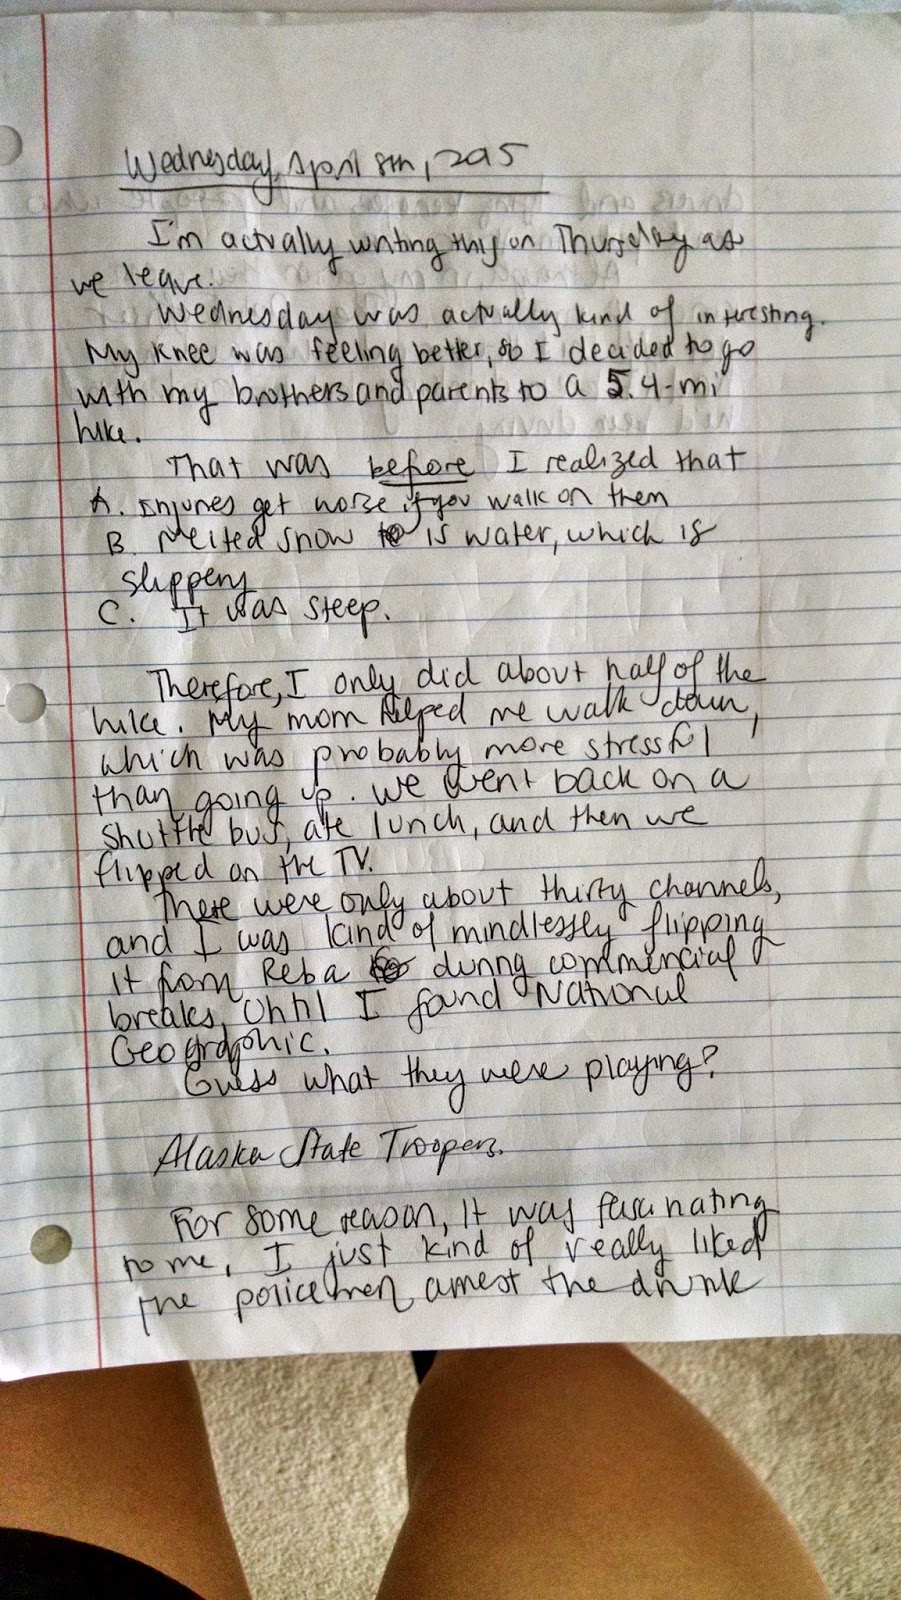 Wednesday, April 8th, 2015
I'm actually writing this on Thursday as
we leave.
Wednesday was actually kind of interesting.
My knee was feeling better, so I decided to go
with my brothers and parents to a 5.4-mi
hike.
That was before I realized that
A. Injuries get worse if you walk on them
B. Melted snow is water, which is
slippery
C. It was steep.
Therefore, I only did about half of the
hike. My mom helped me walk down,
which was probably more stressful
than going up. We went back on a
shuttle bus, ate lunch, and then we
flipped on the TV.
There were only about thirty channels,
and I was kind of mindlessly flipping
it from Reba during commercial
breaks, until I found National
Geographic.
Guess what they were playing?
Alaska State Troopers.
For some reason, it was fascinating
to me, I just kind of really liked
the policemen arrest the drunk